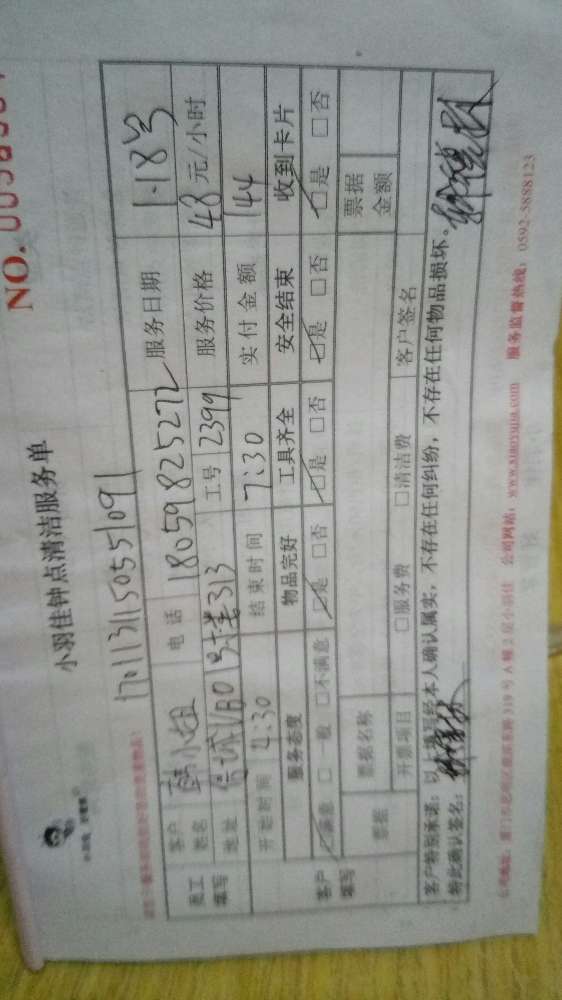 小羽佳钟点清洁服务单
NO.
17011311505551091
员工填写 客户姓名 韩小姐 电话 18059825272 服务日期 1.18号
地址 313 工号 2399 服务价格 48元/小时
开始时间 4:30 结束时间 7:30 实付金额 144
客户填写 服务态度 物品完好 工具齐全 安全结束 收到卡片
☑满意 □一般 □不满意 ☑是 □否 ☑是 □否 ☑是 □否 ☑是 □否
票据 票据名称 票据金额
开票项目 □服务费 □清洁费 客户签名
客户特别承诺：以上填写经本人确认属实，不存在任何纠纷，不存在任何物品损坏。
特此确认签名：
公司网站：www.xiaoyujia.com 服务监督热线：0592-5888123